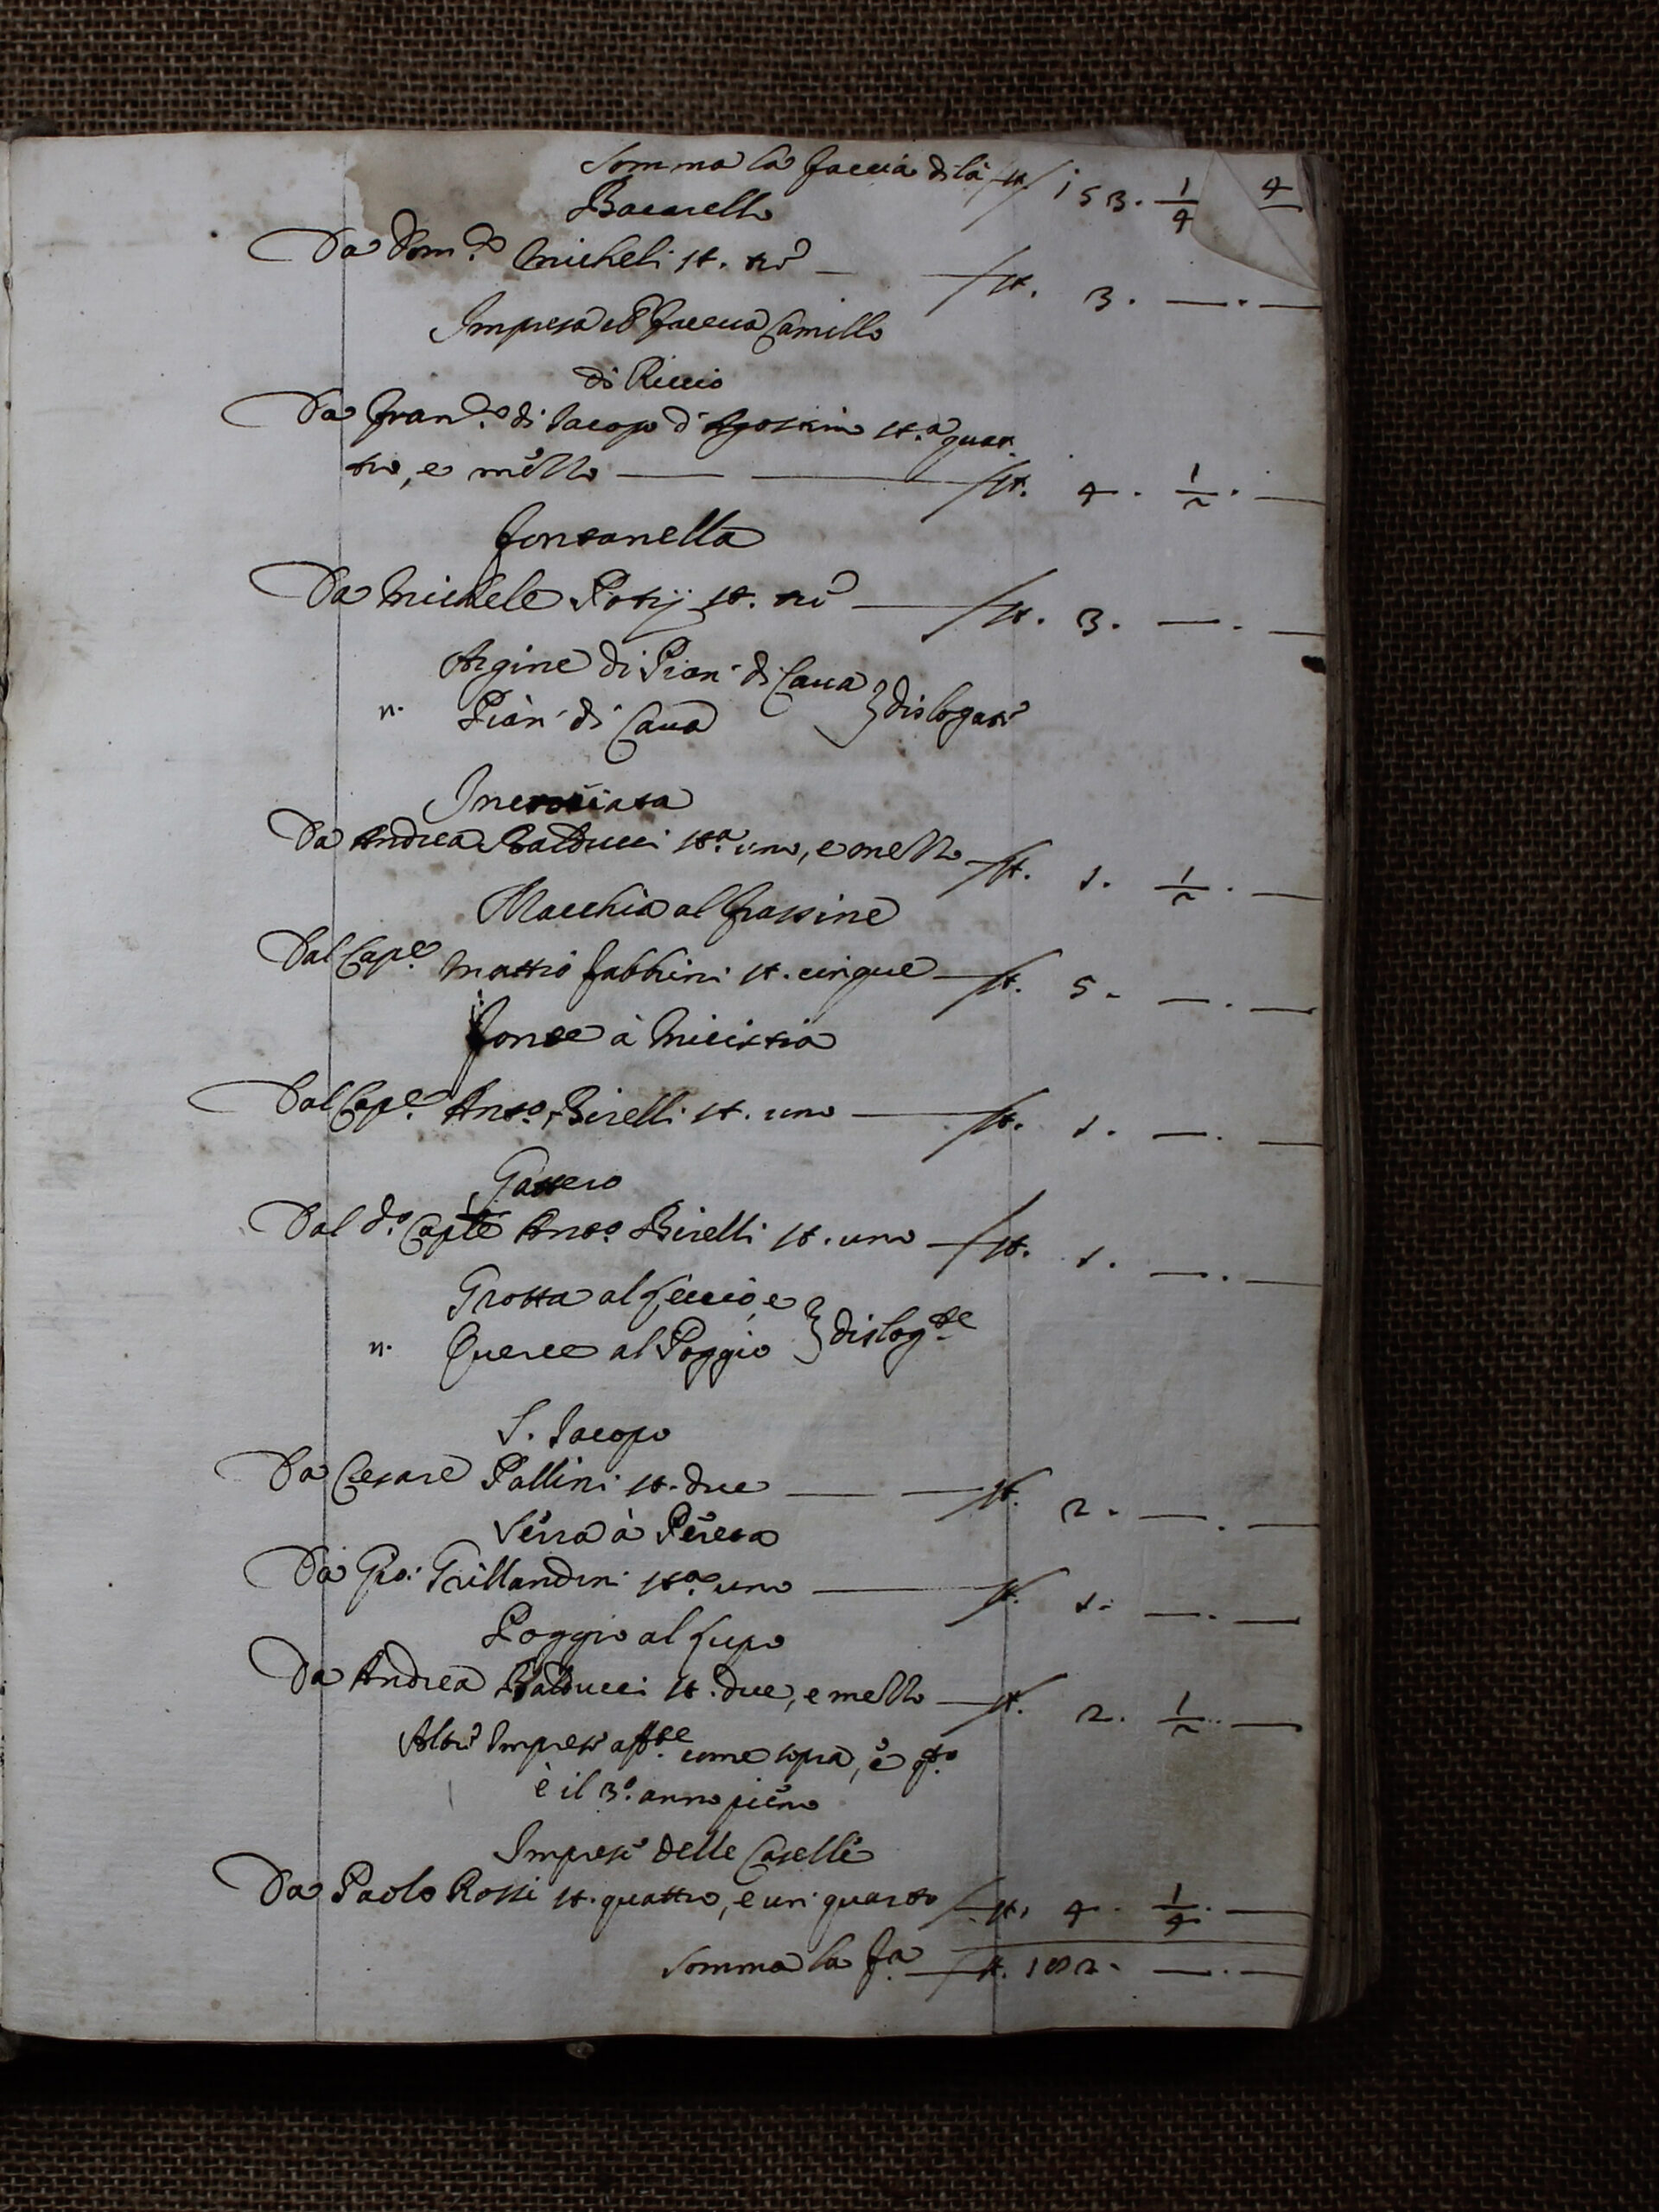 Somma la faccia di là st. 153. 1/4 4
Bacarello
Da Dom.co Micheli st. trè — st. 3. — . —
Impresa Camillo
di Riccio
Da Fran.co di Jacopo d'Agostino st.a quat-
tro, e mezzo — st. 4. 1/2. —
Fontanella
Da Michele Potij st. trè — st. 3. — . —
Argine di Pian' di Caua
n. Pian' di Caua } dislogati
Incrociata
Da Andrea Balducci st.a uno, e mezzo — st. 1. 1/2. —
Macchia al Frassine
Dal Cap.e Matteo Fabbrini st. cinque — st. 5. — . —
Fonte à
Dal Cap.e Ant.o Birelli st. uno — st. 1. — . —
Gattero
Dal d.o Cap.te Ant.o Birelli st. uno — st. 1. — . —
Grotta al Leccio, e
n. Querce al Poggio } dislog.te
S. Jacopo
Da Cesare Pallini st. due — st. 2. — . —
Serra à Pereta
Da Gio: Grillandini st.a uno — st. 1. — . —
Poggio al Lupo
Da Andrea Balducci st. due, e mezzo — st. 2. 1/2. —
Altri Impresi aff.te come sopra, e q.to
è il 3.o anno pieno
Impresi delle Caselle
Da Paolo Rossi st. quattro, e un quarto st. 4. 1/4. —
Somma la f.a — st. 182. — . —